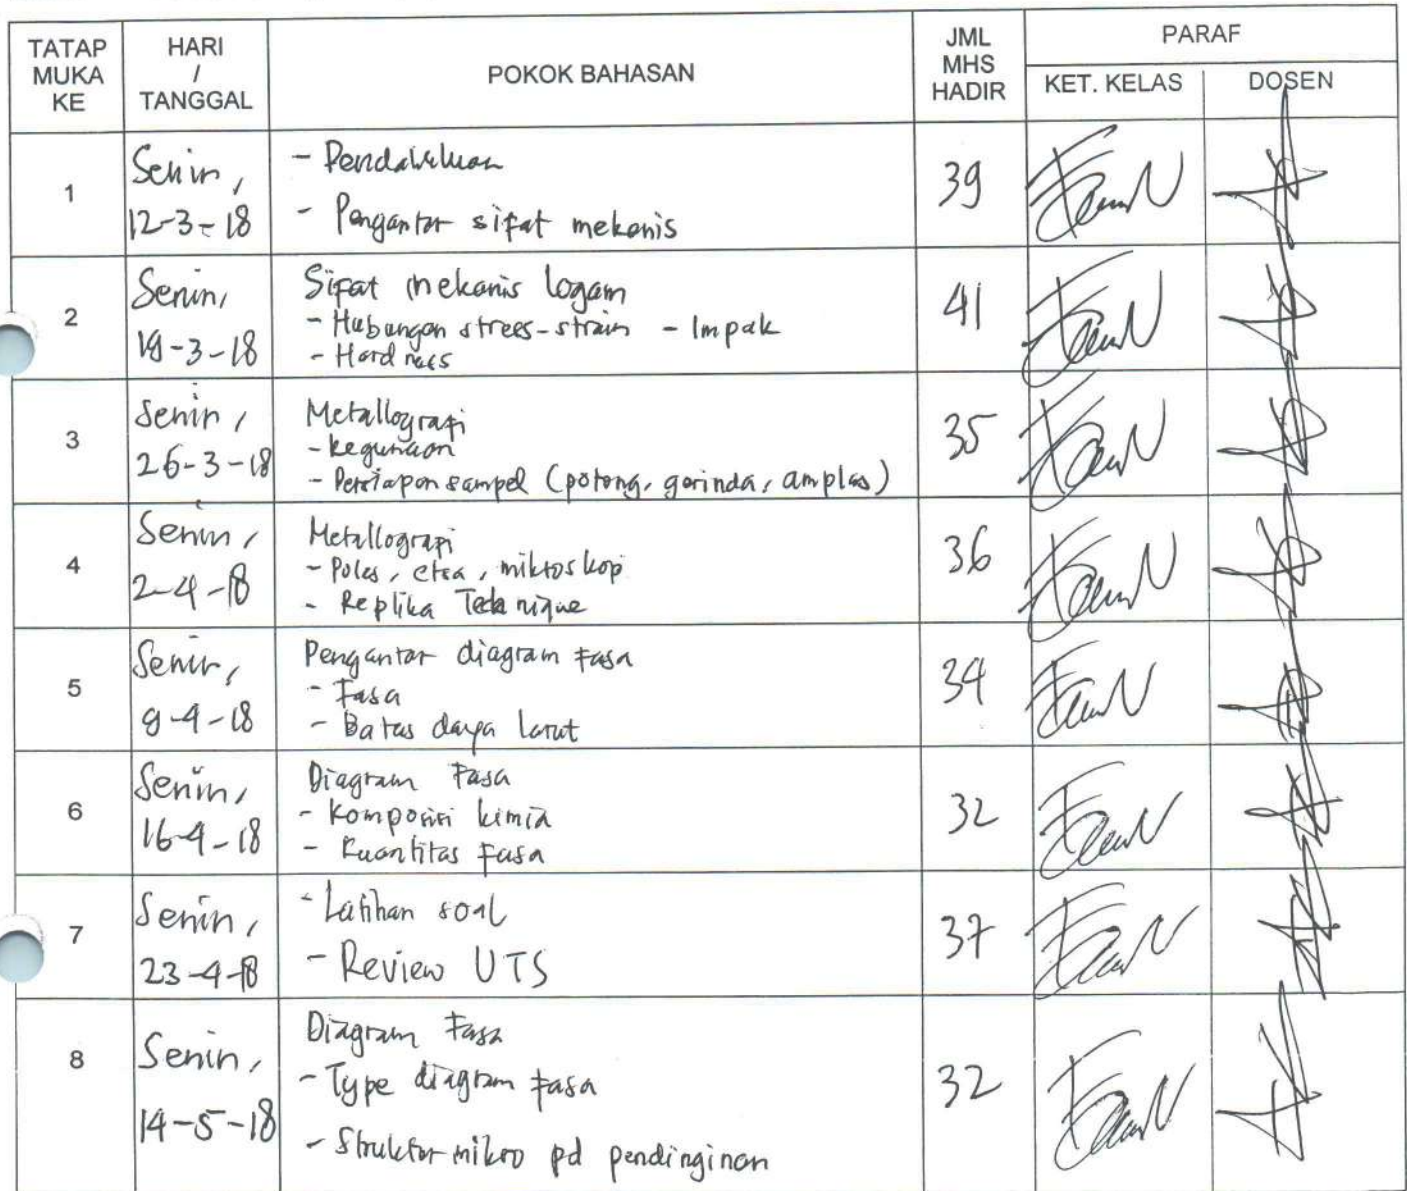 TATAP MUKA KE | HARI / TANGGAL | POKOK BAHASAN | JML MHS HADIR | PARAF
KET. KELAS | DOSEN
1 | Senin, 12-3-18 | - Pendahuluan | 39
- Pengantar sifat mekanis
2 | Senin, 19-3-18 | Sifat mekanis logam | 41
- Hubungan strees-strain - Impak
- Hardness
3 | Senin, 26-3-18 | Metallografi | 35
- kegunaan
- Persiapan sampel (potong, gerinda, amplas)
4 | Senin, 2-4-18 | Metallografi | 36
- Poles, etsa, mikroskop
- Replika Technique
5 | Senin, 9-4-18 | Pengantar diagram fasa | 34
- Fasa
- Batas daya larut
6 | Senin, 16-4-18 | Diagram Fasa | 32
- Komposisi kimia
- Kuantitas fasa
7 | Senin, 23-4-18 | - Latihan soal | 37
- Review UTS
8 | Senin, 14-5-18 | Diagram Fasa | 32
- Type diagram fasa
- Struktur mikro pd pendinginan